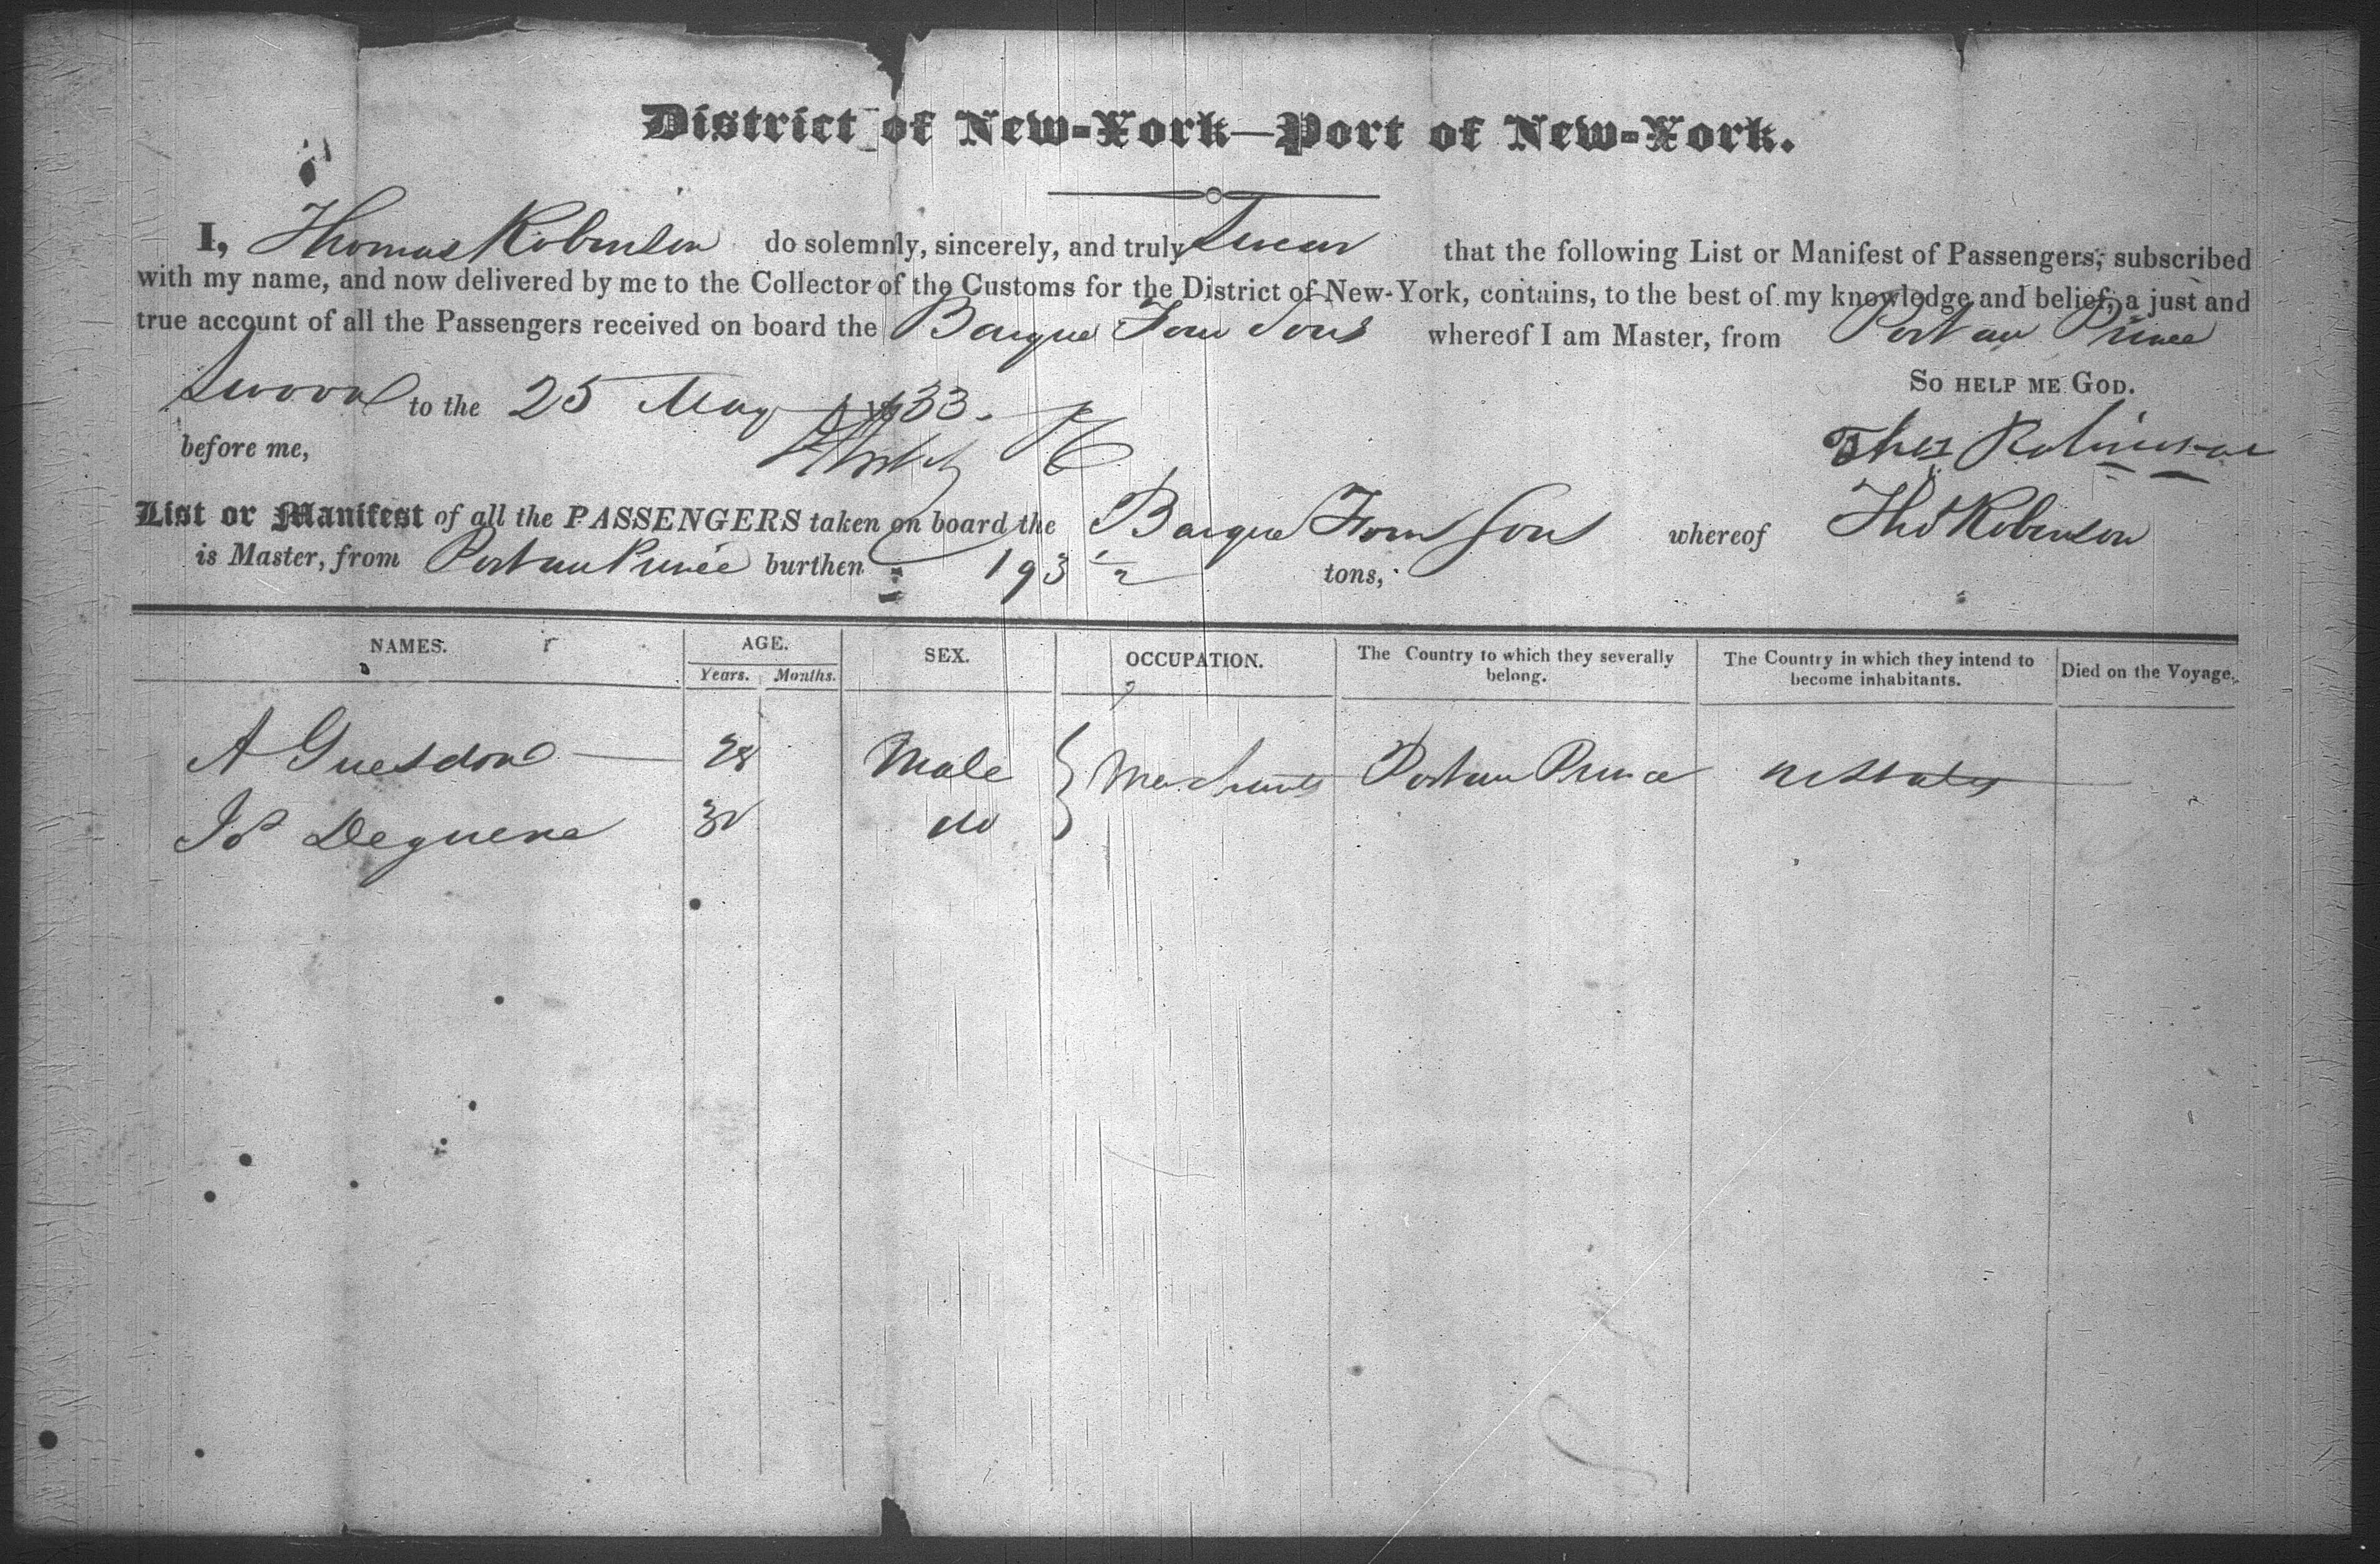 District of New-York—Port of New-York.
I, Thomas Robinson do solemnly, sincerely, and truly Swear that the following List or Manifest of Passengers, subscribed
with my name, and now delivered by me to the Collector of the Customs for the District of New-York, contains, to the best of my knowledge and belief, a just and
true account of all the Passengers received on board the Barque Four Sons whereof I am Master, from Port au Prince
So help me God.
Sworn to the 25 May 1833.
before me,
Thos Robinson
List or Manifest of all the PASSENGERS taken on board the Barque Four Sons whereof Thos Robinson
is Master, from Port au Prince burthen 193 1/2 tons,
NAMES. AGE. SEX. OCCUPATION. The Country to which they severally belong. The Country in which they intend to become inhabitants. Died on the Voyage.
Years. Months.
A Guesdon 28 Male Merchants Port au Prince U States
Js Deguene 30 do